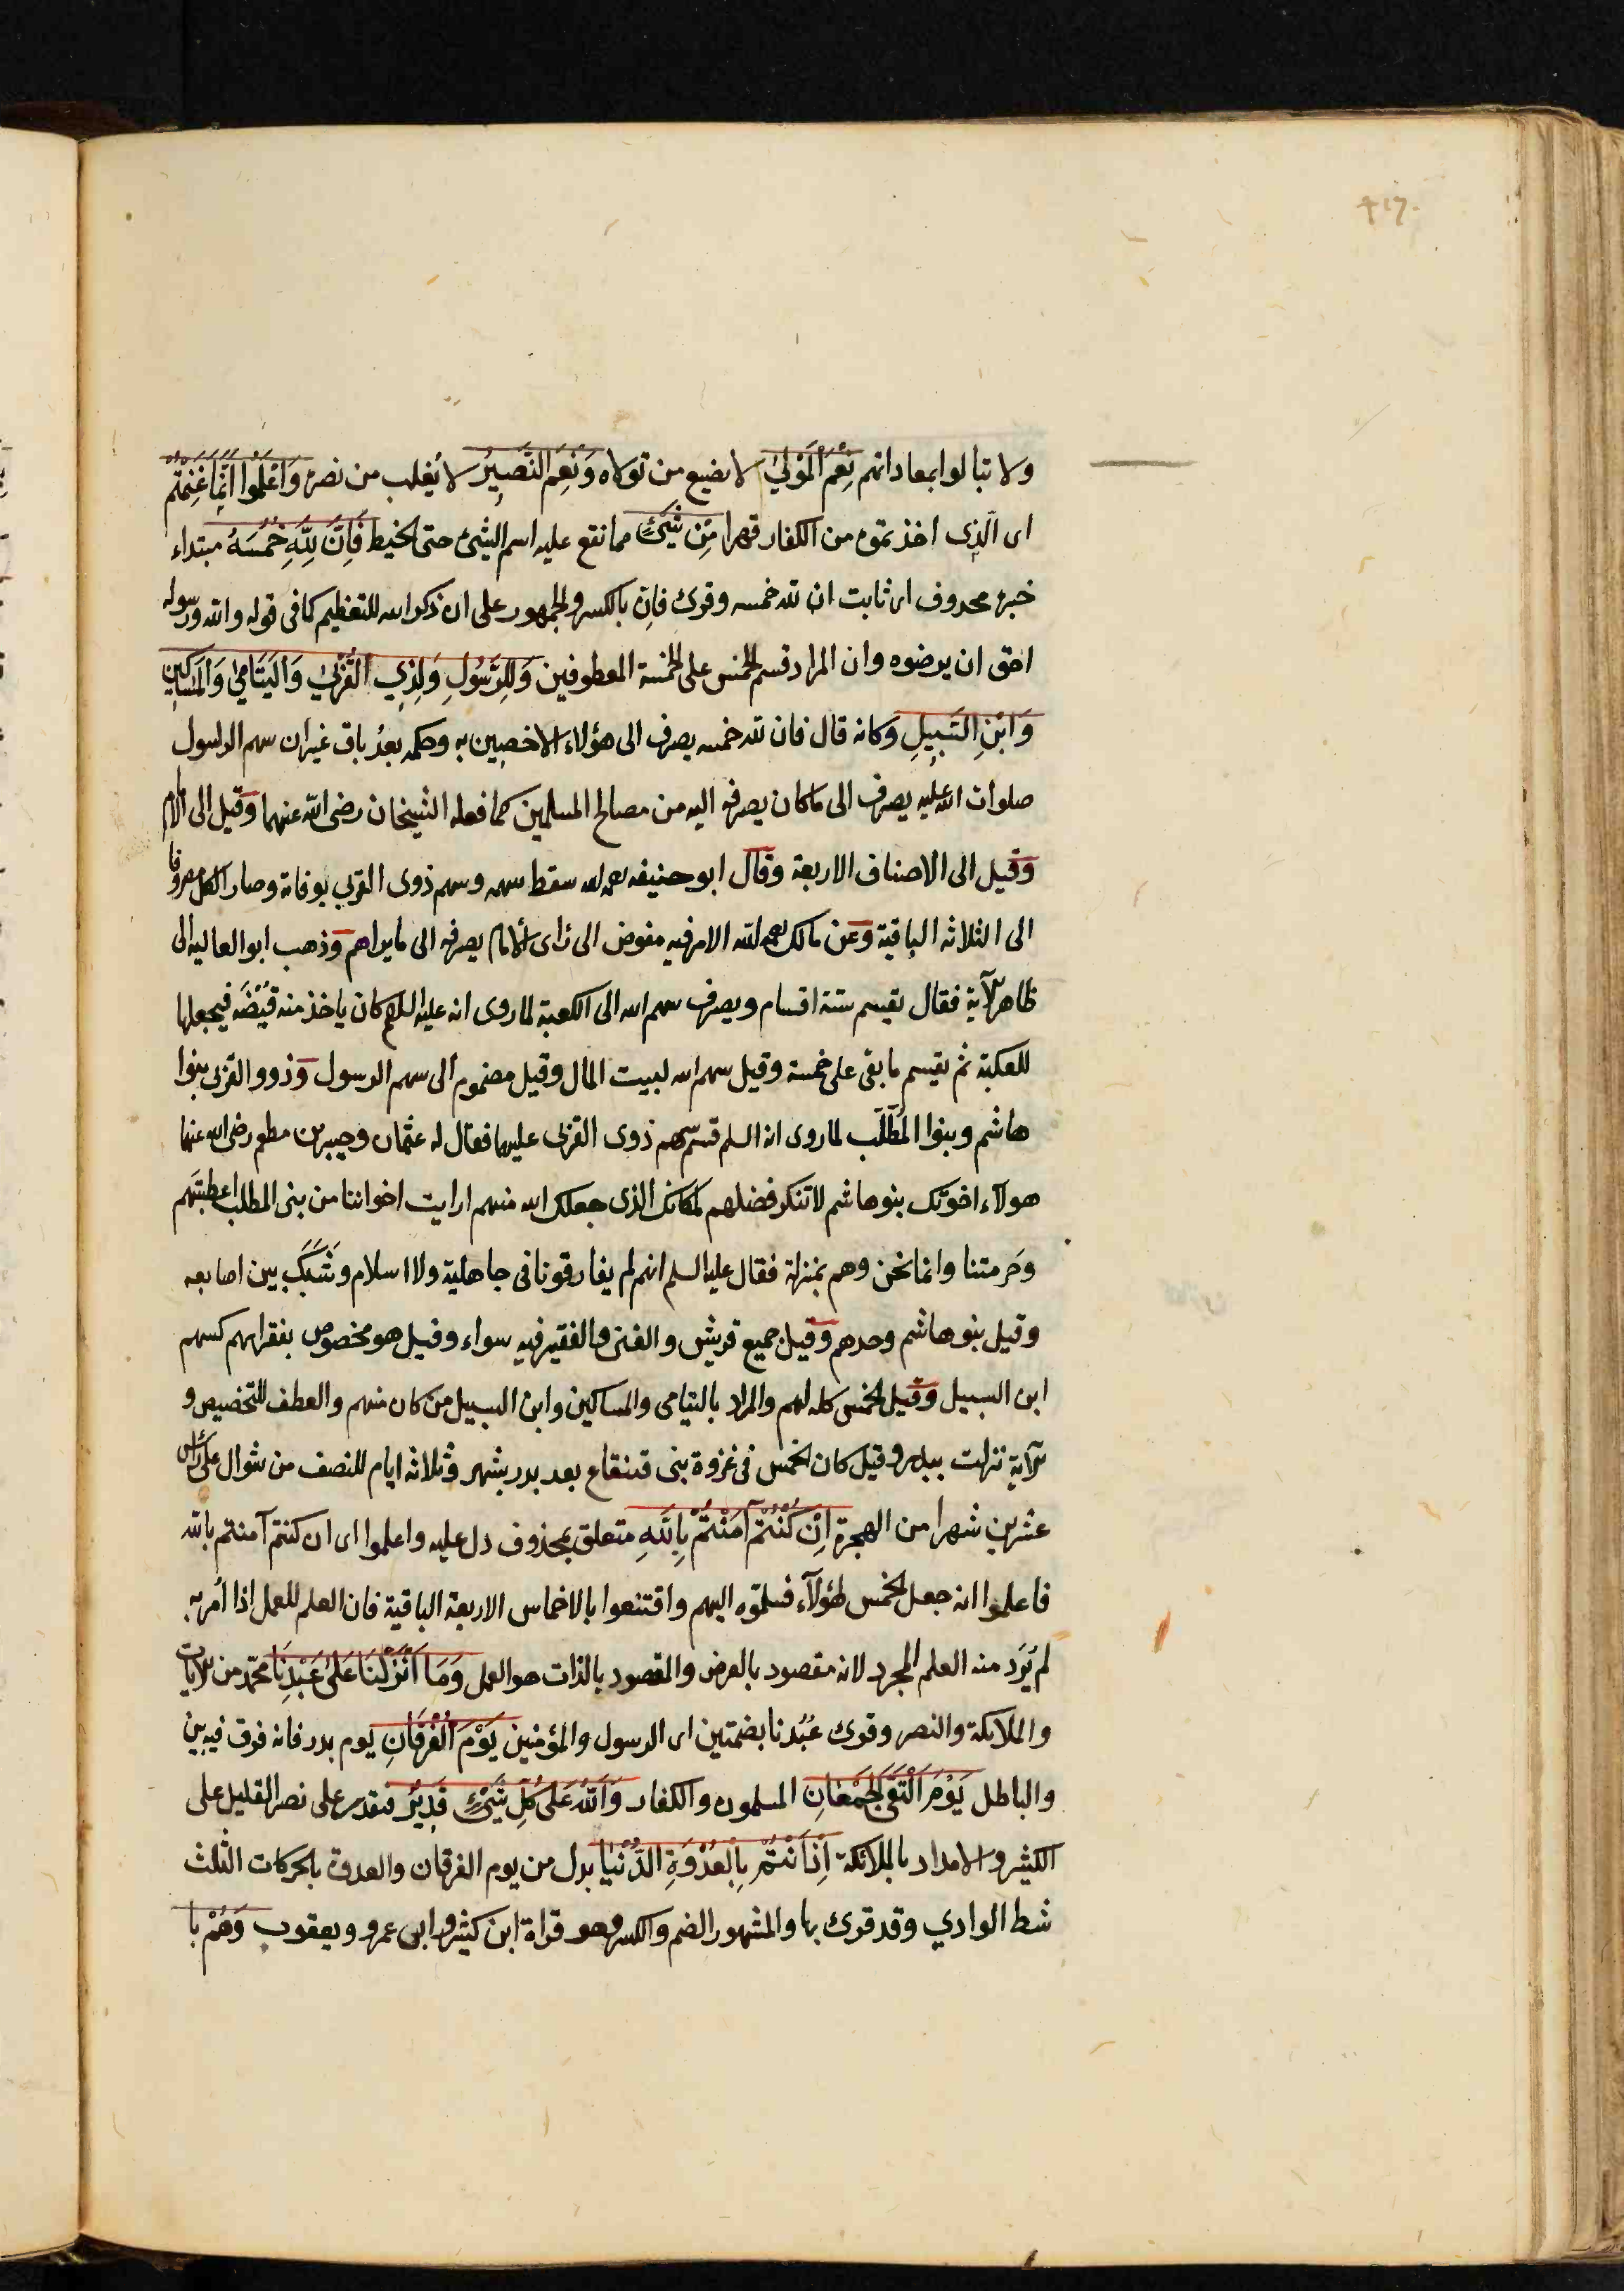 ٤١٦
ولا تبالوا بمعاداتهم نِعْمَ الْمَوْلَىٰ لا يضيع من تولاه وَنِعْمَ النَّصِيرُ لا يُغلب من نصره وَاعْلَمُوا أَنَّمَا غَنِمْتُمْ
اى الّذِى اخذتموه من الكفار قهرا مِنْ شَيْءٍ مما تقع عليه اسم الشئ حتى الخيط فَأَنَّ لِلَّهِ خُمُسَهُ مبتداء
خبره محذوف اى ثابت ان لله خمسه وقرئ فاِن بالكسر والجمهور على ان ذكر الله للتعظيم كما فى قوله والله ورسوله
احق ان يرضوه وان المراد قسم الخمس على الخمسة المعطوفين وَلِلرَّسُولِ وَلِذِي الْقُرْبَىٰ وَالْيَتَامَىٰ وَالْمَسَاكِينِ
وَابْنِ السَّبِيلِ وكانه قال فان لله خمسه يصرف الى هؤلاء الاخصين به وحكمه بعدُ باق غيران سهم الرسول
صلوات الله عليه يصرف الى ما كان يصرفه اليه من مصالح المسلمين كما فعله الشيخان رضى الله عنهما وقيل الى الامام
وقيل الى الاصناف الاربعة وقال ابو حنيفه رحمه الله سقط سهمه وسهم ذوى القربى بوفاته وصار الكل مصروفا
الى الثلاثه الباقية وعن مالك رحمه الله الامر فيه مفوض الى رأى الامام يصرفه الى ما يراه اهم وذهب ابو العاليه الى
ظاهر الآية فقال يقسم ستة اقسام ويصرف سهم الله الى الكعبة لما روى انه عليه السلام كان ياخذ منه قبْضَه فيجعلها
للعكبة ثم يقسم ما بقى على خمسة وقيل سهم الله لبيت المال وقيل مضموم الى سهم الرسول وذوو القربى بنوا
هاشم وبنوا المُطّلَب لما روى انه السلم قسم سهم ذوى القربى عليهما فقال له عثمان وجبير بن مطعم رضى الله عنهما
هولآء اخوتك بنوهاشم لا تنكر فضلهم لمكانك الذى جعلك الله منهم ارايت اخواننا من بنى المطلب اعطيتهم
وحَرمتنا وانما نحن وهم بمنزلة فقال عليه السلم انهم لم يفارقونا فى جاهلية ولا اسلام وشَبَّكَ بين اصابعه
وقيل بنوهاشم وحدهم وقيل جميع قريش والغنى والفقير فيه سواء وقيل هو مخصوص بفقرائهم كسهم
ابن السبيل وقيل الخمس كله لهم والمراد باليتامى والمساكين وابن السبيل من كان منهم والعطف للتخصيص و
الآية نزلت ببدر وقيل كان الخمس فى غزوة بنى قينقاع بعد بدر بشهر وثلاثه ايام للنصف من شوال على رأس
عشرين شهرا من الهجرة إِنْ كُنْتُمْ آمَنْتُمْ بِاللَّهِ متعلق بمحذوف دل عليه واعلموا اى ان كنتم آمنتم بالله
فاعلموا انه جعل الخمس لهؤلآء فسلّموه اليهم واقتنعوا بالاخماس الاربعة الباقية فان العلم للعمل اذا اُمر به
لم يَرد منه العلم المجرد لانه مقصود بالعرض والمقصود بالذات هو العمل وَمَا أَنْزَلْنَا عَلَىٰ عَبْدِنَا محمّد من الآيات
والملائكة والنصر وقرئ عُبُدنا بضمتين اى الرسول والمؤمنين يَوْمَ الْفُرْقَانِ يوم بدر فانه فرق فيه بين
والباطل يَوْمَ الْتَقَى الْجَمْعَانِ المسلمون والكفار وَاللَّهُ عَلَىٰ كُلِّ شَيْءٍ قَدِيرٌ فيقدر على نصر القليل على
الكثير والامداد بالملائكة إِذْ أَنْتُمْ بِالْعُدْوَةِ الدُّنْيَا بدل من يوم الفرقان والعدوة بالحركات الثلث
شط الوادي وقد قرئ بها والمشهور الضم والكسر وهو قراة ابن كثير وابى عمرو ويعقوب وَهُمْ بِا